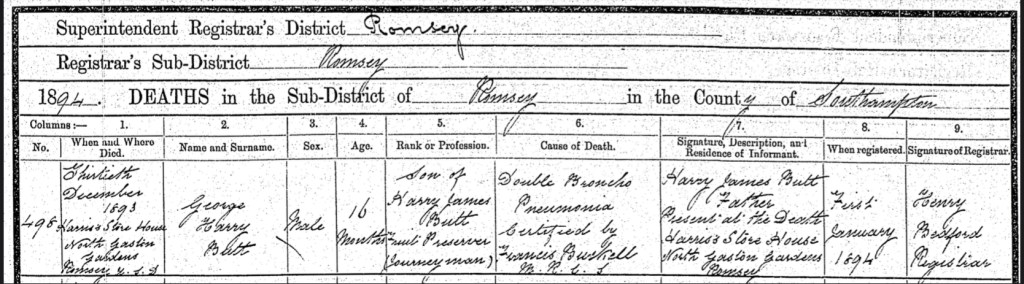 Superintendent Registrar's District Romsey.
Registrar's Sub-District Romsey
1894. DEATHS in the Sub-District of Romsey in the County of Southampton
Columns:— 1. 2. 3. 4. 5. 6. 7. 8. 9.
No. When and Where Died. Name and Surname. Sex. Age. Rank or Profession. Cause of Death. Signature, Description, and Residence of Informant. When registered. Signature of Registrar.
498
Thirtieth
December
1893
Harris's Store House
North Gaston
Gardens
Romsey U.S.D
George
Harry
Butt
Male
16
Months
Son of
Harry James
Butt
Fruit Preserver
(Journeyman)
Double Broncho
Pneumonia
Certified by
Francis Buckell
M.R.C.S
Harry James Butt
Father
Present at the Death
Harris's Store House
North Gaston Gardens
Romsey
First
January
1894
Henry
Bedford
Registrar